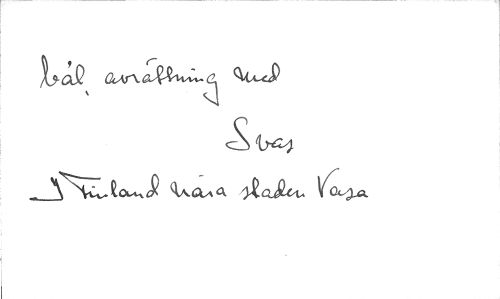 bål, avrättning med
Svas
I Finland nära staden Vasa